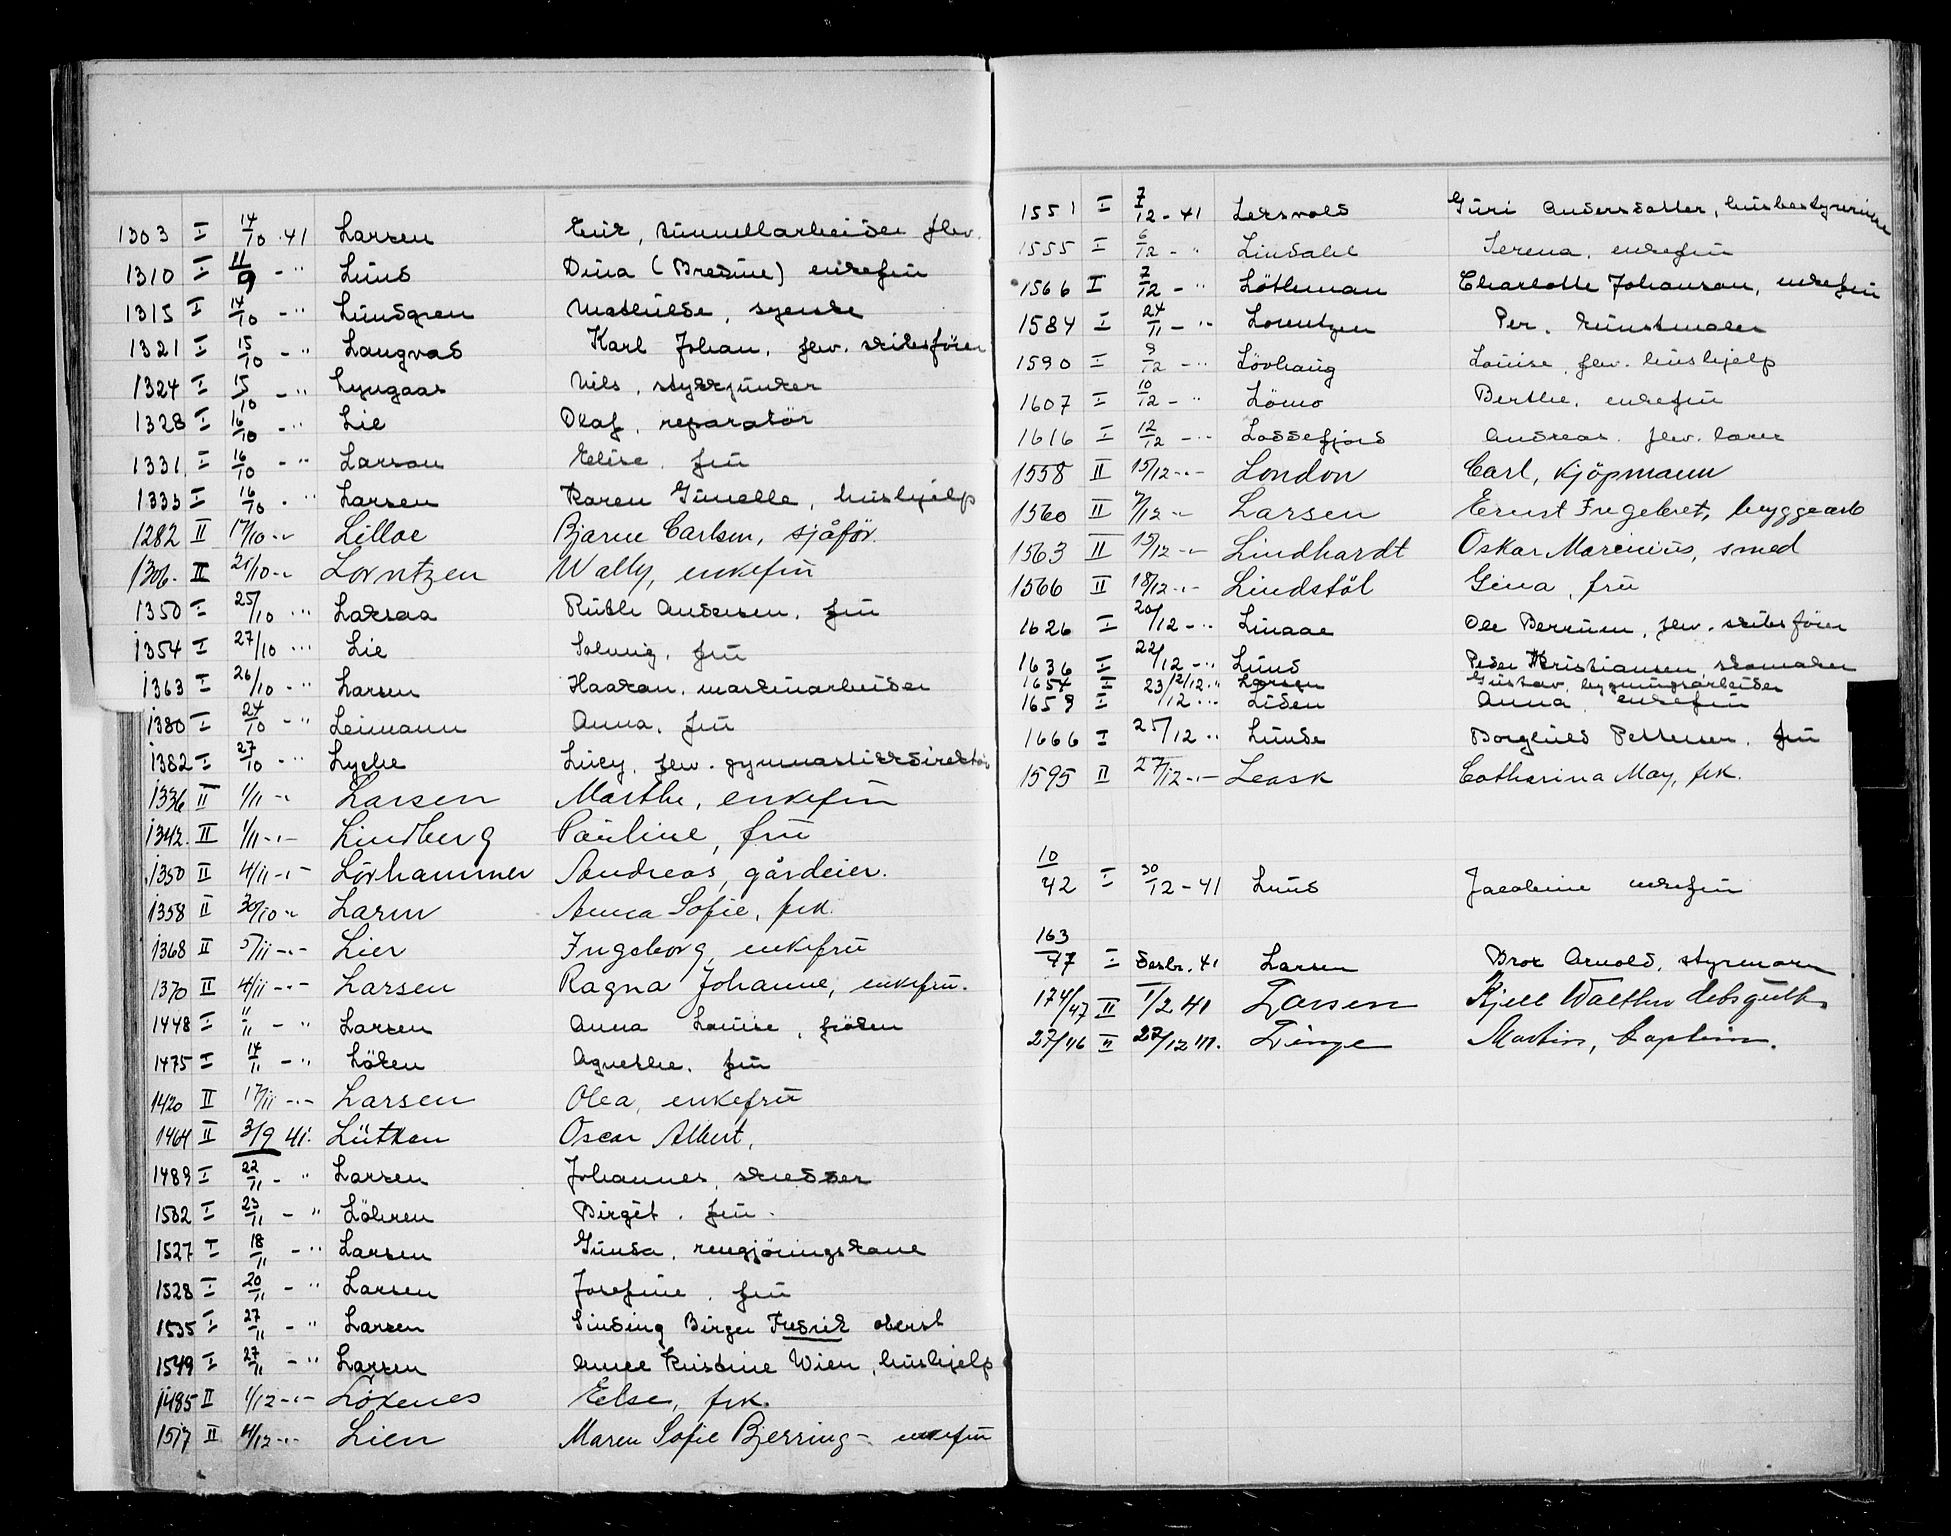 1303 I 14/10 - 41 Larsen Erik, tunnellarbeider, flev.
1310 I 11/9 - " Lund Dina (Bredine) enkefru
1315 I 14/10 - " Lundgren Mathilde, syerske
1321 I 15/10 - " Langvad Karl Johan, flev. skibsfören
1324 I 15/10 - " Lyngaas Nils, stykkjunker
1328 I 16/10 - " Lie Olaf, reparatör
1331 I 16/10 - " Larsen Elise, fru
1333 I 16/10 - " Larsen Karen Gunelle, hushjelp
1282 II 17/10 - " Lilloe Bjarne Carlsen, sjåför.
1306. II 21/10 - " Lorntzen Wally, enkefru
1350 I 25/10 - " Laksaa Ruth Andersen, fru
1354 I 27/10 - " Lie Solveig, fru
1363 I 26/10 - " Larsen Haakon, maskinarbeider
1380 I 24/10 - " Leimann Anna, fru
1382 I 27/10 - " Lyche Lucy, flev. gymnastikkdirektör
1336 II 1/11 - " Larsen Marthe, enkefru
1342. II 1/11 - " Lindberg Pauline, fru
1350 II 4/11 - " Lövhammer Andreas, gårdeier.
1358 II 30/10 - " Larm Anna Sofie, frk.
1368 II 5/11 - " Lier Ingeborg, enkefru
1370 II 4/11 - " Larsen Ragna Johanne, enkefru.
1448 I 11/11 - " Larsen Anna Louise, fröken
1475 I 14/11 - " Löken Agnethe, fru
1420 II 17/11 - " Larsen Olea, enkefru
1464 II 3/9 41. Lütken Oscar Albert,
1489 I 22/11 - " Larsen Johannes, skredder
1502 I 23/11 - " Löhren Birgit, fru
1527 I 18/11 - " Larsen Gunda, rengjöringskone
1528 I 20/11 - " Larsen Josefine, fru
1535 I 27/11 - " Larsen Sinding Birger Fredrik oberst
1549 I 27/11 - " Larsen Anne Kristine Wien, hushjelp
1485 II 1/12 - " Löxenes Else, frk.
1517 II 4/12 - " Lien Maren Sofie Bjerring - enkefru
1551 I 7/12 - 41 Leksvold Guri Andersdatter, husbestyrerinne
1555 I 6/12 - " Lindahl Serena, enkefru
1566 I 7/12 - " Löthman Charlotte Johanson, enkefru
1584 I 24/11 - " Lorentzen Per, kunstmaler
1590 I 9/12 - " Lövhaug Louise, flev. hushjelp
1607 I 10/12 - " Lömo Berthe, enkefru
1616 I 12/12 - " Loddefjord Andreas, flev. lærer
1558 II 15/12 - " London Carl, kjöpmann
1560 II 7/12 " Larsen Ernst Ingebret, bryggearb
1563 II 15/12 - " Lindhardt Oskar Marcinius, smed
1566 II 18/12 - " Lindstöl Gina, fru
1626 I 20/12 - " Linaae Ole Berrum, flev. skibsfören
1636 I 22/12 - " Lund Peder Kristiansen, skomaker
1654 I 23/12/12 " Larsen Gustav, bygningsarbeider
1659 I /12 - " Liden Anna, enkefru
1666 I 25/12 - " Lunde Borghild Pettersen, fru
1595 II 27/12 - " Leask Catharina May, frk.
10/42 I 30/12 - 41 Lund Jacobine enkefru
163/47 I desbr. 41 Larsen Bror Arnold, styrmann
174/47 II 1/2 41 Larsen Kjell Walther
27/46 II 27/12 41. Linge Martin, Captein.